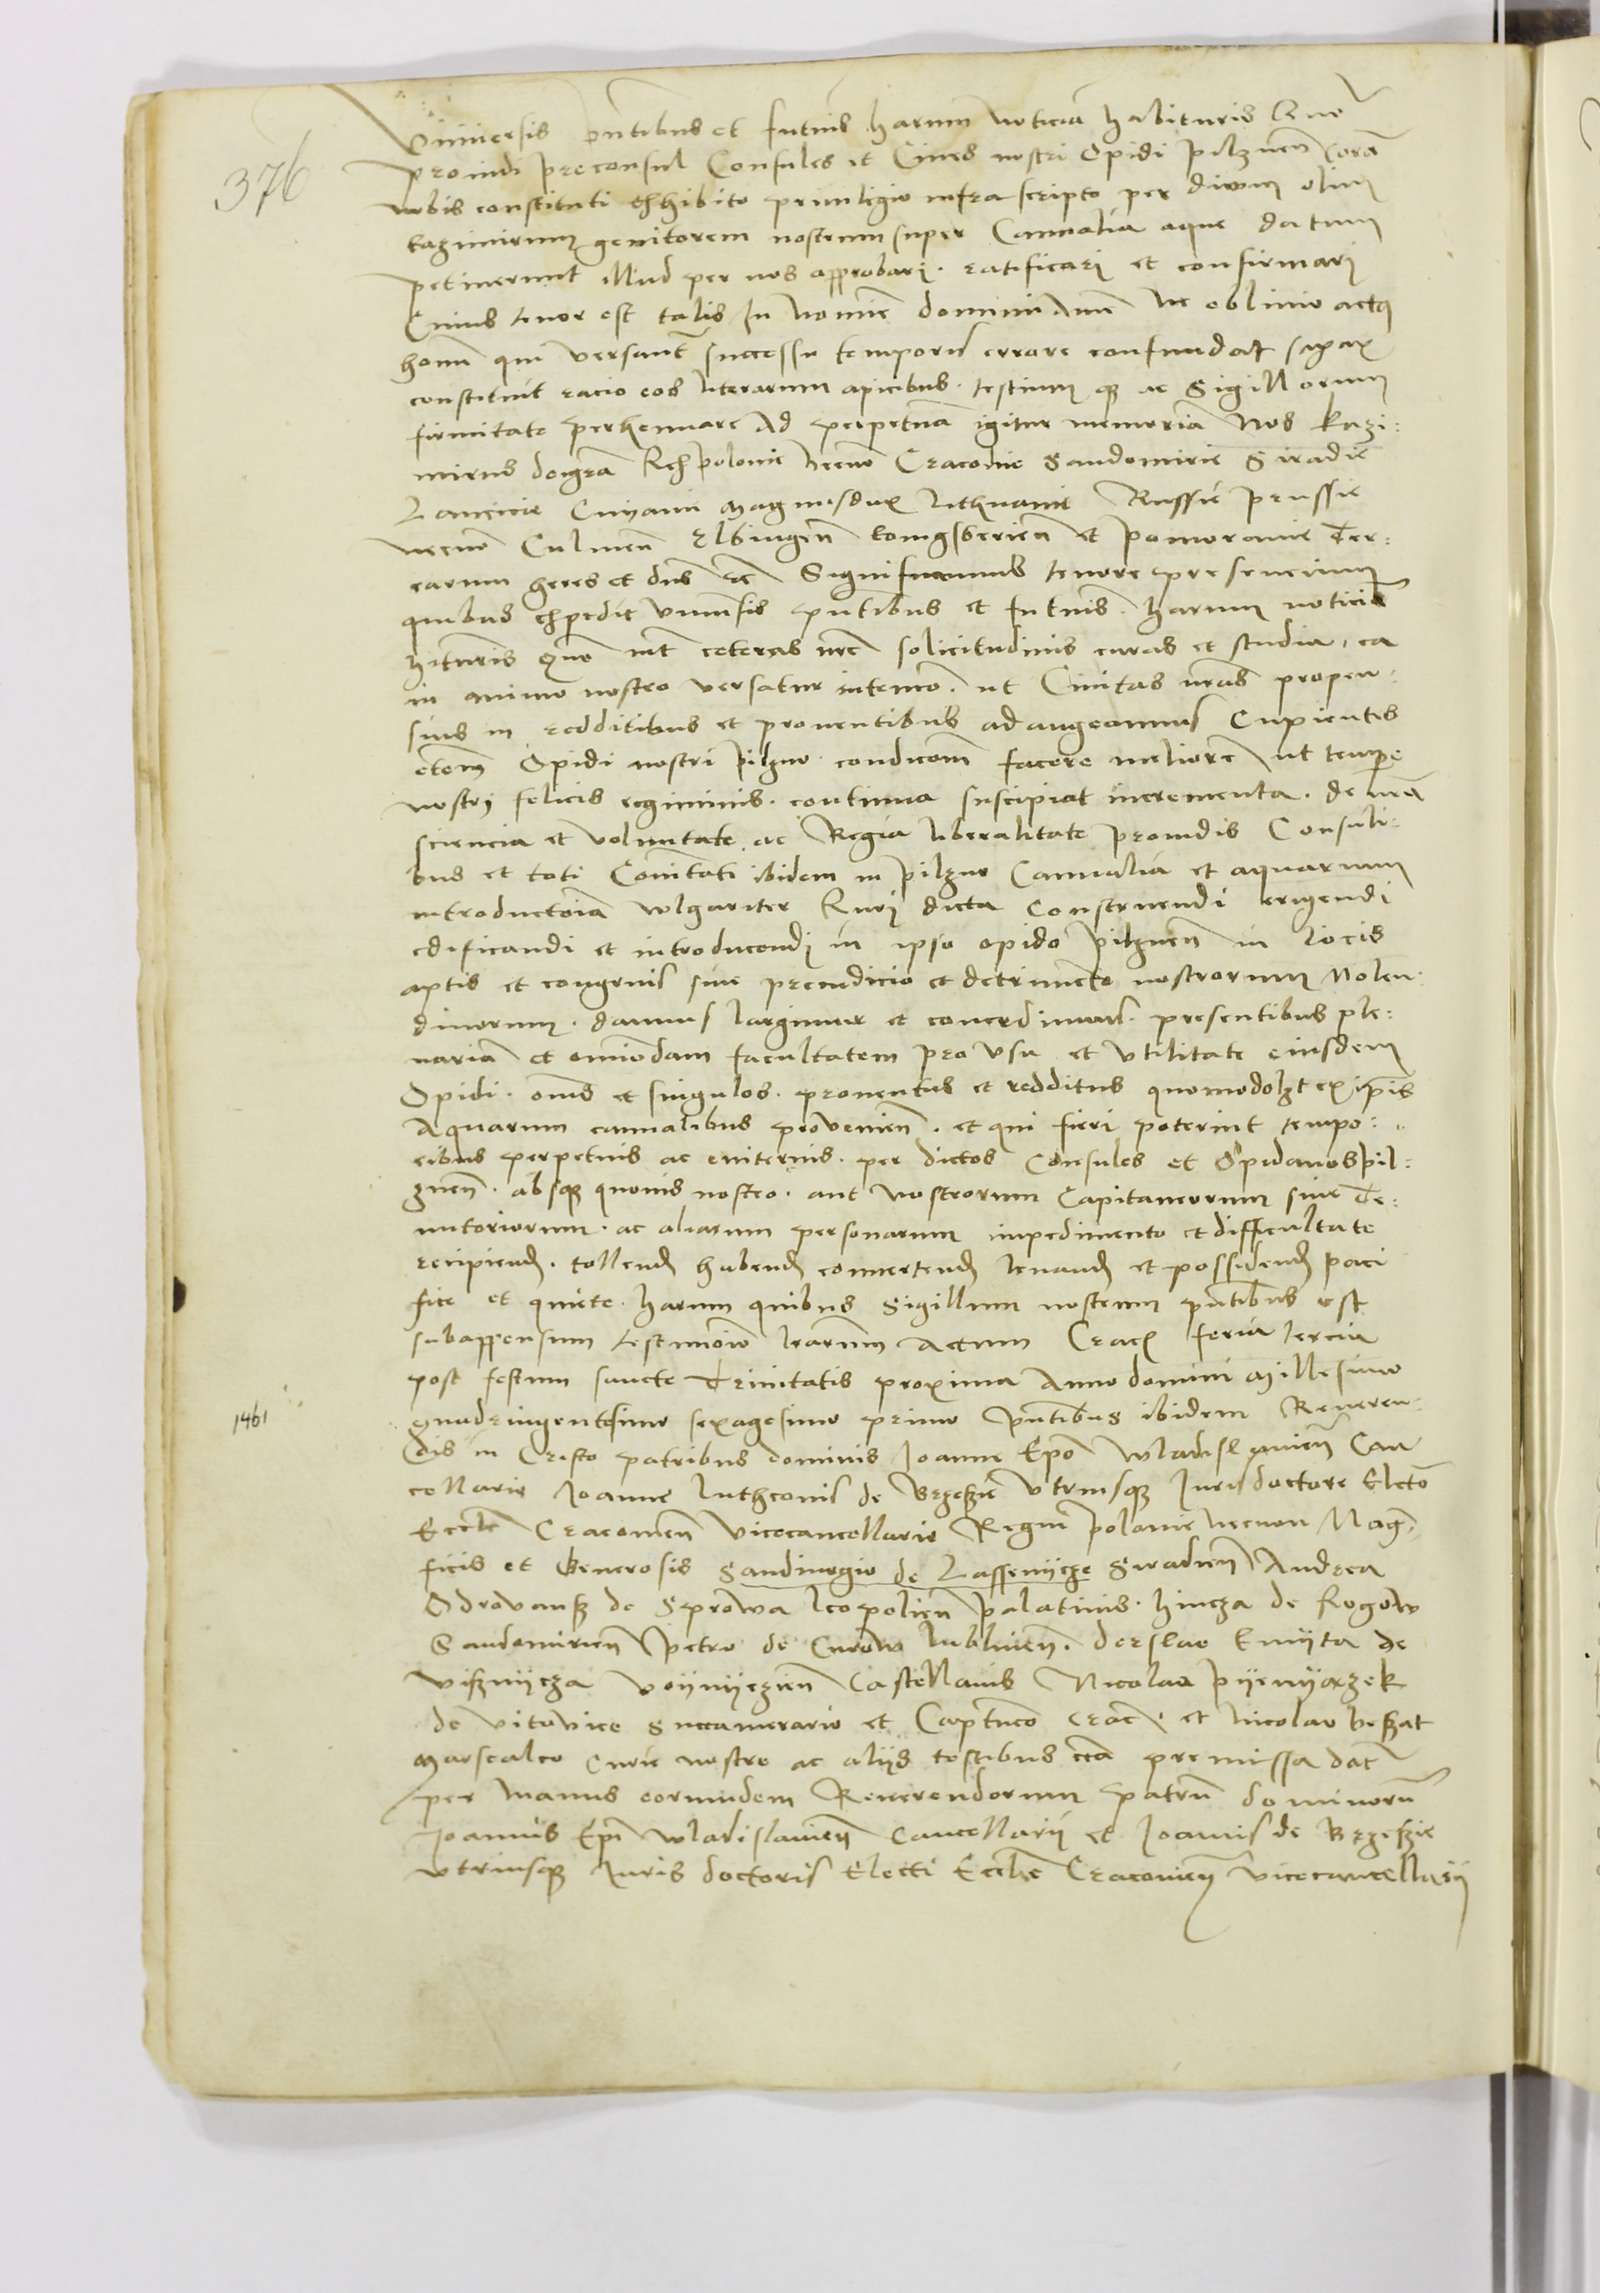 376
Universis pntibus et futuris harum noticiam habituris Quo
providi preconsul Consules et Cives nostri Opidi pilznen Coram
nobis constituti exhibito privilegio infrascripto per divum olim
kazimirum genitorem nostrum super Cannalia aque datum
petiverunt illud per nos approbari . ratificari et confirmari
Cuius tenor est talis In nomine domini Amen Ne oblivio actus
homn qui versant successu temporis errore confundat sagax
constituit racio eos literarum apicibus . testiumq ac Sigillorum
firmitate perhennare Ad perpetuam igitur memoriam Nos Kazi:
mirus dei gra Rex polonie necno Cracovie Sandomirie Siradie
Lancicie Cuyavie Magnus dux lithvanie Russie prussie
necno Culmen Elbingen konigsberien et pomoranie Ter:
rarum heres et dns etc Significamus tenore presencium
quibus expedit universis pntibus et futuris . harum noticia
hituris Quo int ceteras nre solicitudinis curas et studia , ea
in animo nostro versatur intencio . ut Civitas nras propen:
sius in redditibus et proventibus adaugeamus Cupientes
etem Opidi nostri pilzno condicom facere meliore ut tempore
nostri felicis regiminis . continua suscipiat incrementa . de nra
sciencia et voluntate ac Regia liberalitate providis Consuli:
bus et toti Comitati ibidem in pilzno Cannalia et aquarum
introductoria wlgariter Ruri dicta Construendi erigendi
edificandi et introducendi in ipso opido pilznen in locis
aptis et congruis sine preiudicio et detrimento nostrorum Molen
dinorum . damus largimur et concedimus . presentibus ple:
nariam et omiodam facultatem pro usu et utilitate eiusdem
Opidi . oms et singulos . proventus et redditus quomodolzt ex ipsis
Aquarum cannalibus provenien . et qui fieri poterint tempo:
ribus perpetuis ac eviternis . per dictos Consules et Opidanos pil:
znen . absq quovis nostro . aut nostrorum Capitaneorum sive Te:
nutoriorum . ac aliarum personarum impedimento et difficultate
recipiend . tollend habend convertend levand et possidend paci
fice et quiete . harum quibus Sigillum nostrum pntibus est
subappensum testimonio lrarum Actum Crac feria tercia
post festum sancte Trinitatis proxima Anno domini Millesimo
1461
quadringentesimo sexagesimo primo pntibus ibidem Reveren
dis in Cristo patribus dominis Joanne Epo wladislavien Can
cellario Joanne luthconis de Brzeszie Utriusq Juris doctore Electo
Eccle Cracovien vicecancellario Regni polonie necnon Mag
ficis et Generosis Sandivogio de Lasseniicze Siradien Andrea
Odrovansz de Sprowa leopolien palatinis . hincza de Rogow
Sandomirien petro de Curow lublinen . derslao kmiita de
viszniicza voiiniiczien Castellanis Nicolao piieniiazek
de vitovice Succamerario et Captneo crac . et Nicolao beszat
Marscalco Curie nostre ac aliis testibus cca premissa dat
per manus eorumdem Reverendorum patrum dominorum
Joannis Epi wladislavien Cancellarii et Joannis de Brzeszie
utriusq Juris doctoris Electi Eccle Cracovien vicecancellarii